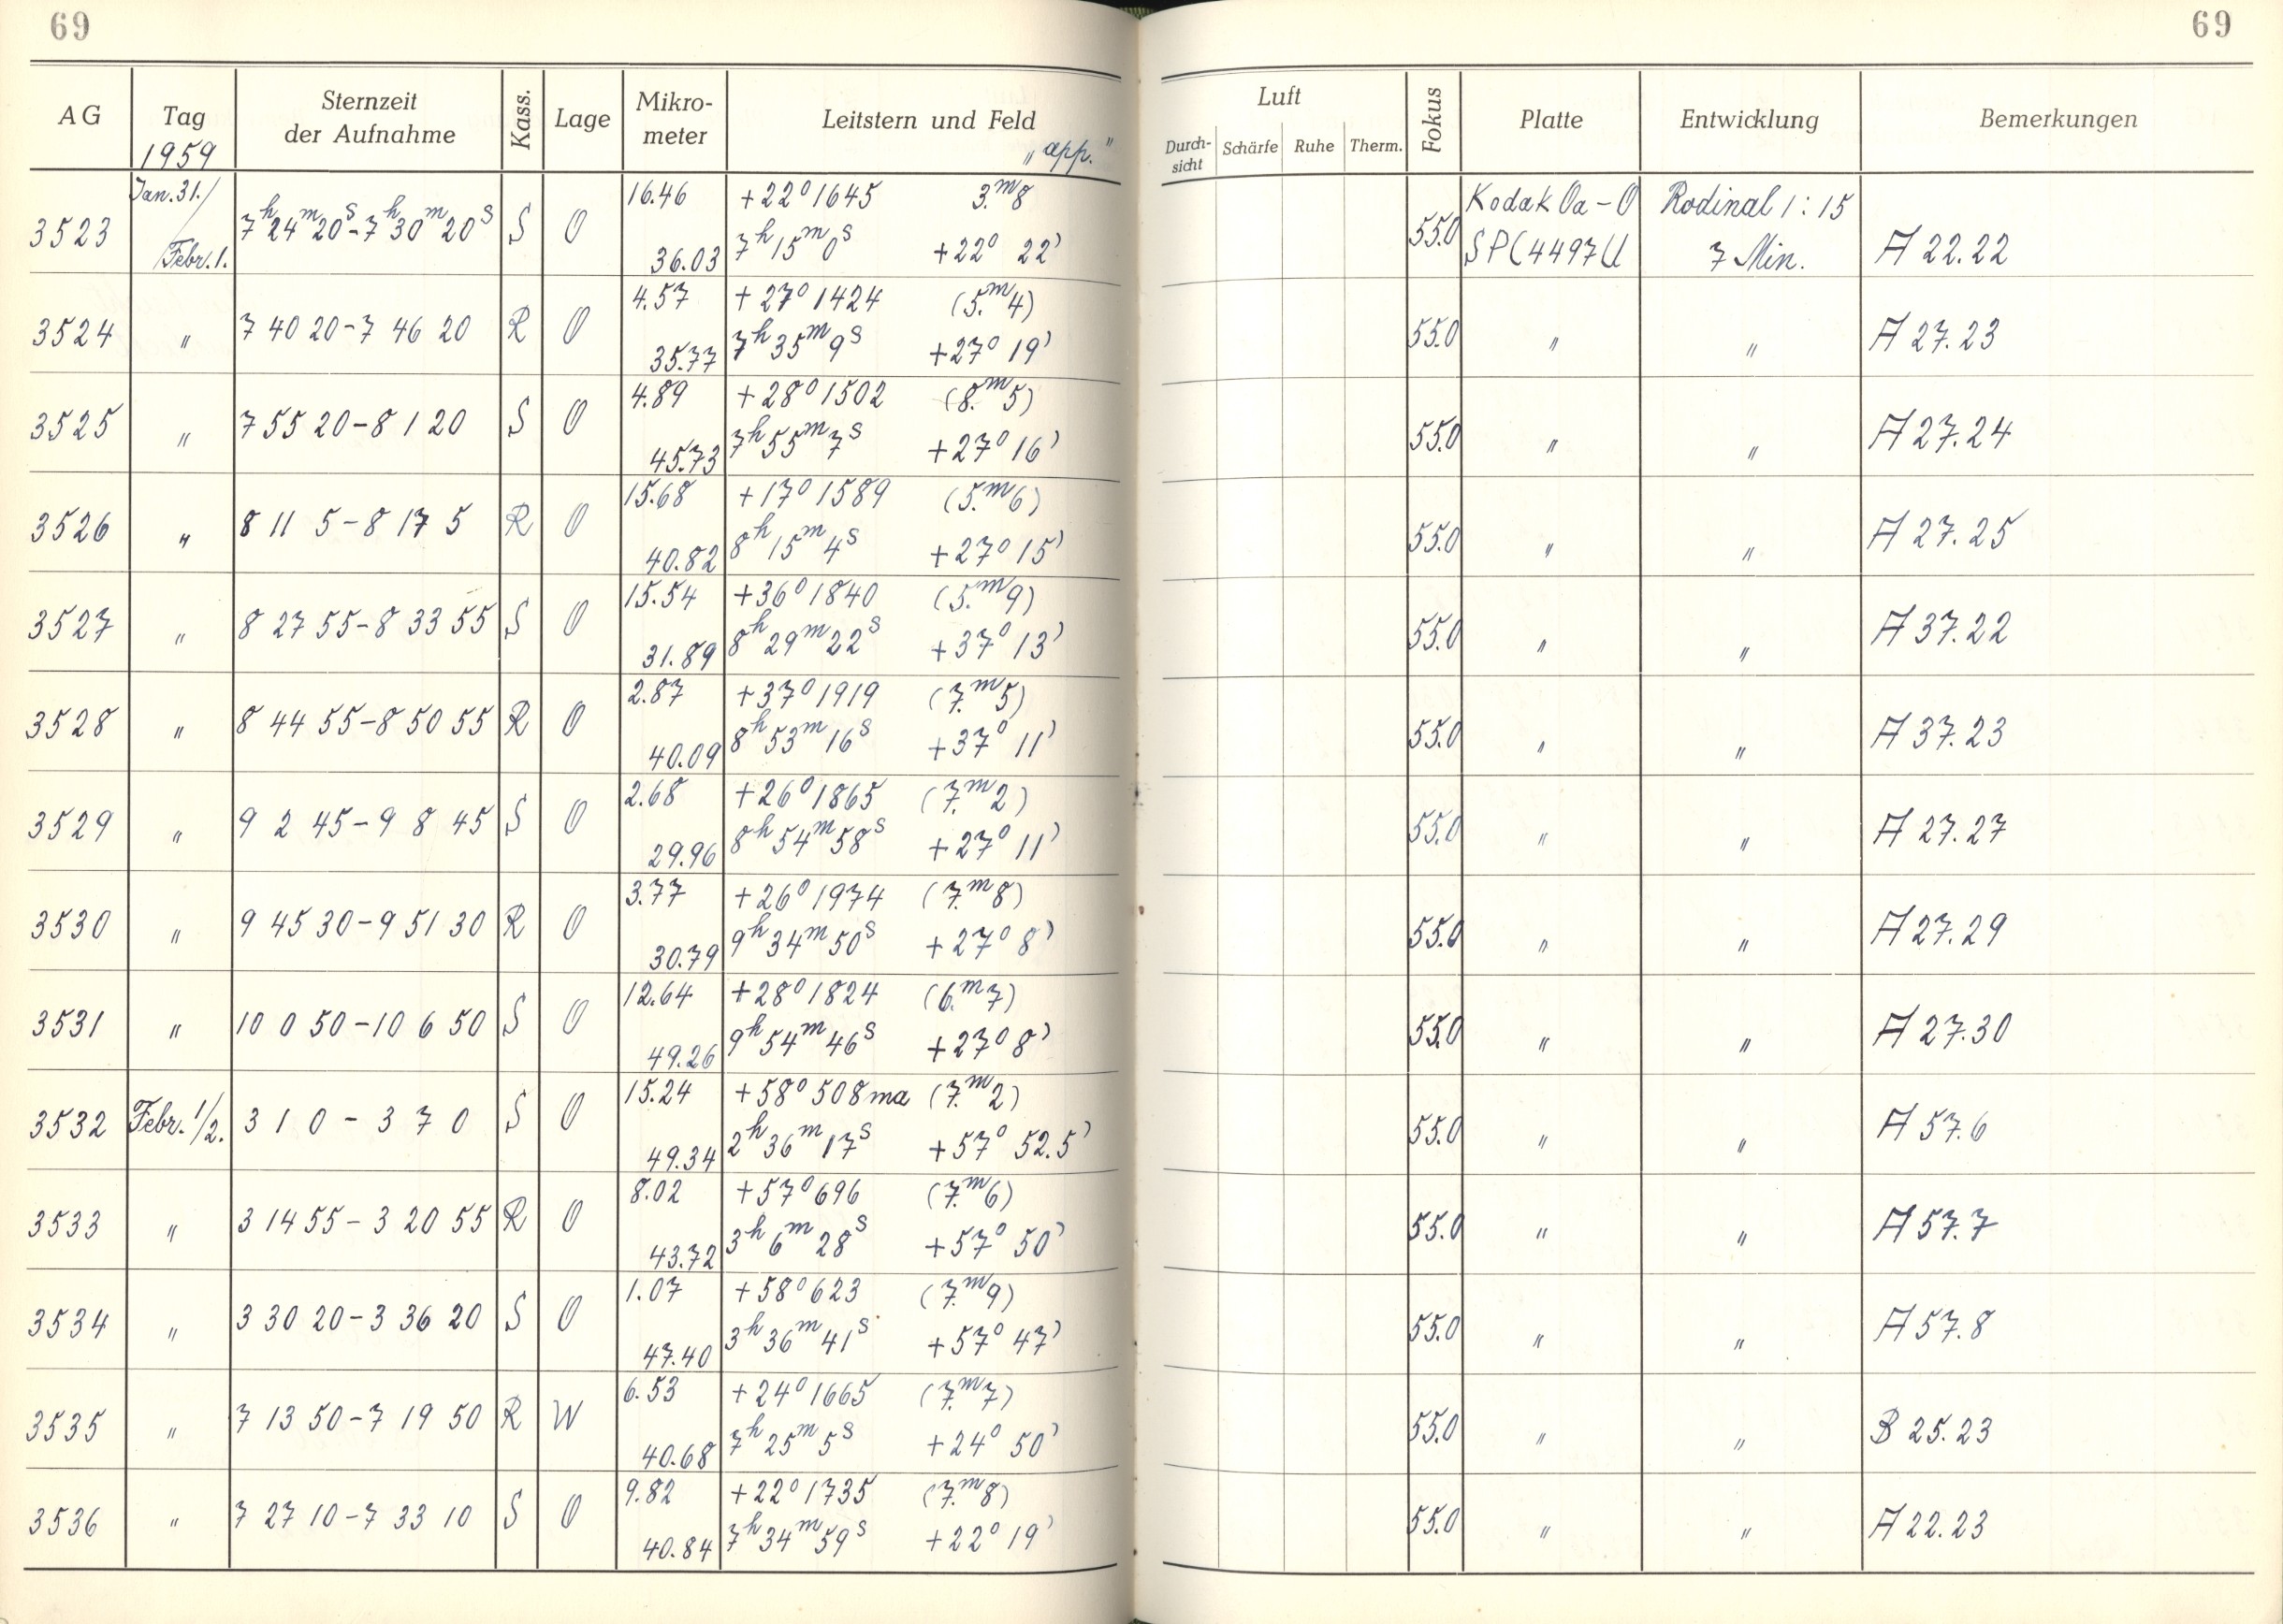 69 69
AG Tag 1959 Sternzeit der Aufnahme Kass. Lage Mikrometer Leitstern und Feld „app.“ Luft Durchsicht Schärfe Ruhe Therm. Fokus Platte Entwicklung Bemerkungen
Jan. 31./ 16.46 +22° 1645 3.ᵐ8 Kodak Oa-O Rodinal 1:15
3523 7ʰ24ᵐ20ˢ-7ʰ30ᵐ20ˢ S O 55.0
/Febr. 1. 36.03 7ʰ 15ᵐ 0ˢ +22° 22' 7 Min. A 22.22
4.57 +27° 1424 (5.ᵐ4)
3524 " 7 40 20-7 46 20 R O 55.0 " " A 27.23
35.77 7ʰ 35ᵐ 9ˢ +27° 19'
4.89 +28° 1502 (8.ᵐ5)
3525 " 7 55 20-8 1 20 S O 55.0 " " A 27.24
45.73 7ʰ 55ᵐ 7ˢ +27° 16'
15.68 +17° 1589 (5.ᵐ6)
3526 " 8 11 5-8 17 5 R O 55.0 " " A 27.25
40.82 8ʰ 15ᵐ 4ˢ +27° 15'
15.54 +36° 1840 (5.ᵐ9)
3527 " 8 27 55-8 33 55 S O 55.0 " " A 37.22
31.89 8ʰ 29ᵐ 22ˢ +37° 13'
2.87 +37° 1919 (7.ᵐ5)
3528 " 8 44 55-8 50 55 R O 55.0 " " A 37.23
40.09 8ʰ 53ᵐ 16ˢ +37° 11'
2.68 +26° 1865 (7.ᵐ2)
3529 " 9 2 45-9 8 45 S O 55.0 " " A 27.27
29.96 8ʰ 54ᵐ 58ˢ +27° 11'
3.77 +26° 1974 (7.ᵐ8)
3530 " 9 45 30-9 51 30 R O 55.0 " " A 27.29
30.79 9ʰ 34ᵐ 50ˢ +27° 8'
12.64 +28° 1824 (6.ᵐ7)
3531 " 10 0 50-10 6 50 S O 55.0 " " A 27.30
49.26 9ʰ 54ᵐ 46ˢ +27° 8'
15.24 +58° 508 ma (7.ᵐ2)
3532 Febr. 1/2. 3 1 0 - 3 7 0 S O 55.0 " " A 57.6
49.34 2ʰ 36ᵐ 17ˢ +57° 52.5'
8.02 +57° 696 (7.ᵐ6)
3533 " 3 14 55-3 20 55 R O 55.0 " " A 57.7
43.72 3ʰ 6ᵐ 28ˢ +57° 50'
1.07 +58° 623 (7.ᵐ9)
3534 " 3 30 20-3 36 20 S O 55.0 " " A 57.8
47.40 3ʰ 36ᵐ 41ˢ +57° 47'
6.53 +24° 1665 (7.ᵐ7)
3535 " 7 13 50-7 19 50 R W 55.0 " " B 25.23
40.68 7ʰ 25ᵐ 5ˢ +24° 50'
9.82 +22° 1735 (7.ᵐ8)
3536 " 7 27 10-7 33 10 S O 55.0 " " A 22.23
40.84 7ʰ 34ᵐ 59ˢ +22° 19'